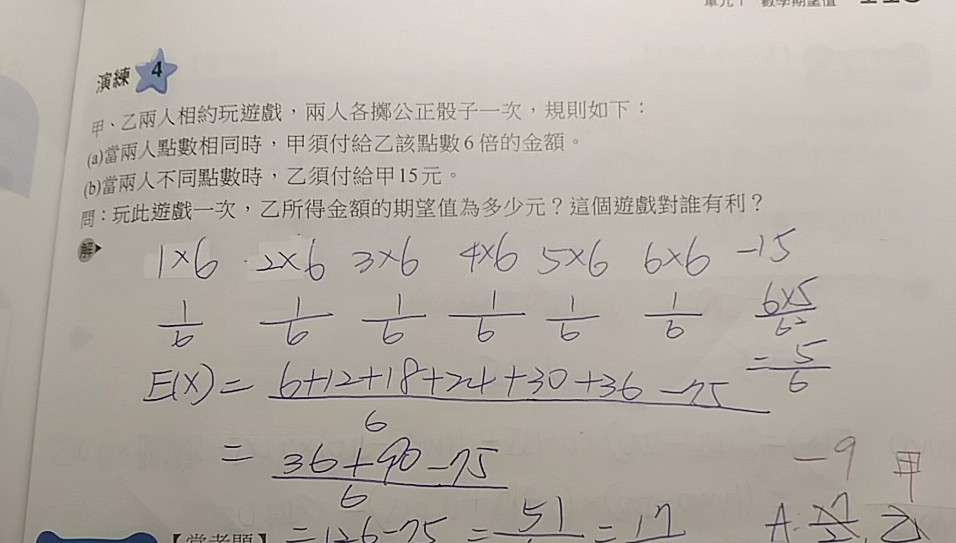 單元1 數學期望值
演練 4
甲、乙兩人相約玩遊戲，兩人各擲公正骰子一次，規則如下：
(a)當兩人點數相同時，甲須付給乙該點數6倍的金額。
(b)當兩人不同點數時，乙須付給甲15元。
問：玩此遊戲一次，乙所得金額的期望值為多少元？這個遊戲對誰有利？
解
1×6 2×6 3×6 4×6 5×6 6×6 -15
1/6 1/6 1/6 1/6 1/6 1/6 6×5/6²
= 5/6
E(X) = 6+12+18+24+30+36-75 / 6
= 36+90-75 / 6
-9 甲
= 126-75 = 51 = 17 A: 17/2, 乙
【常考題】